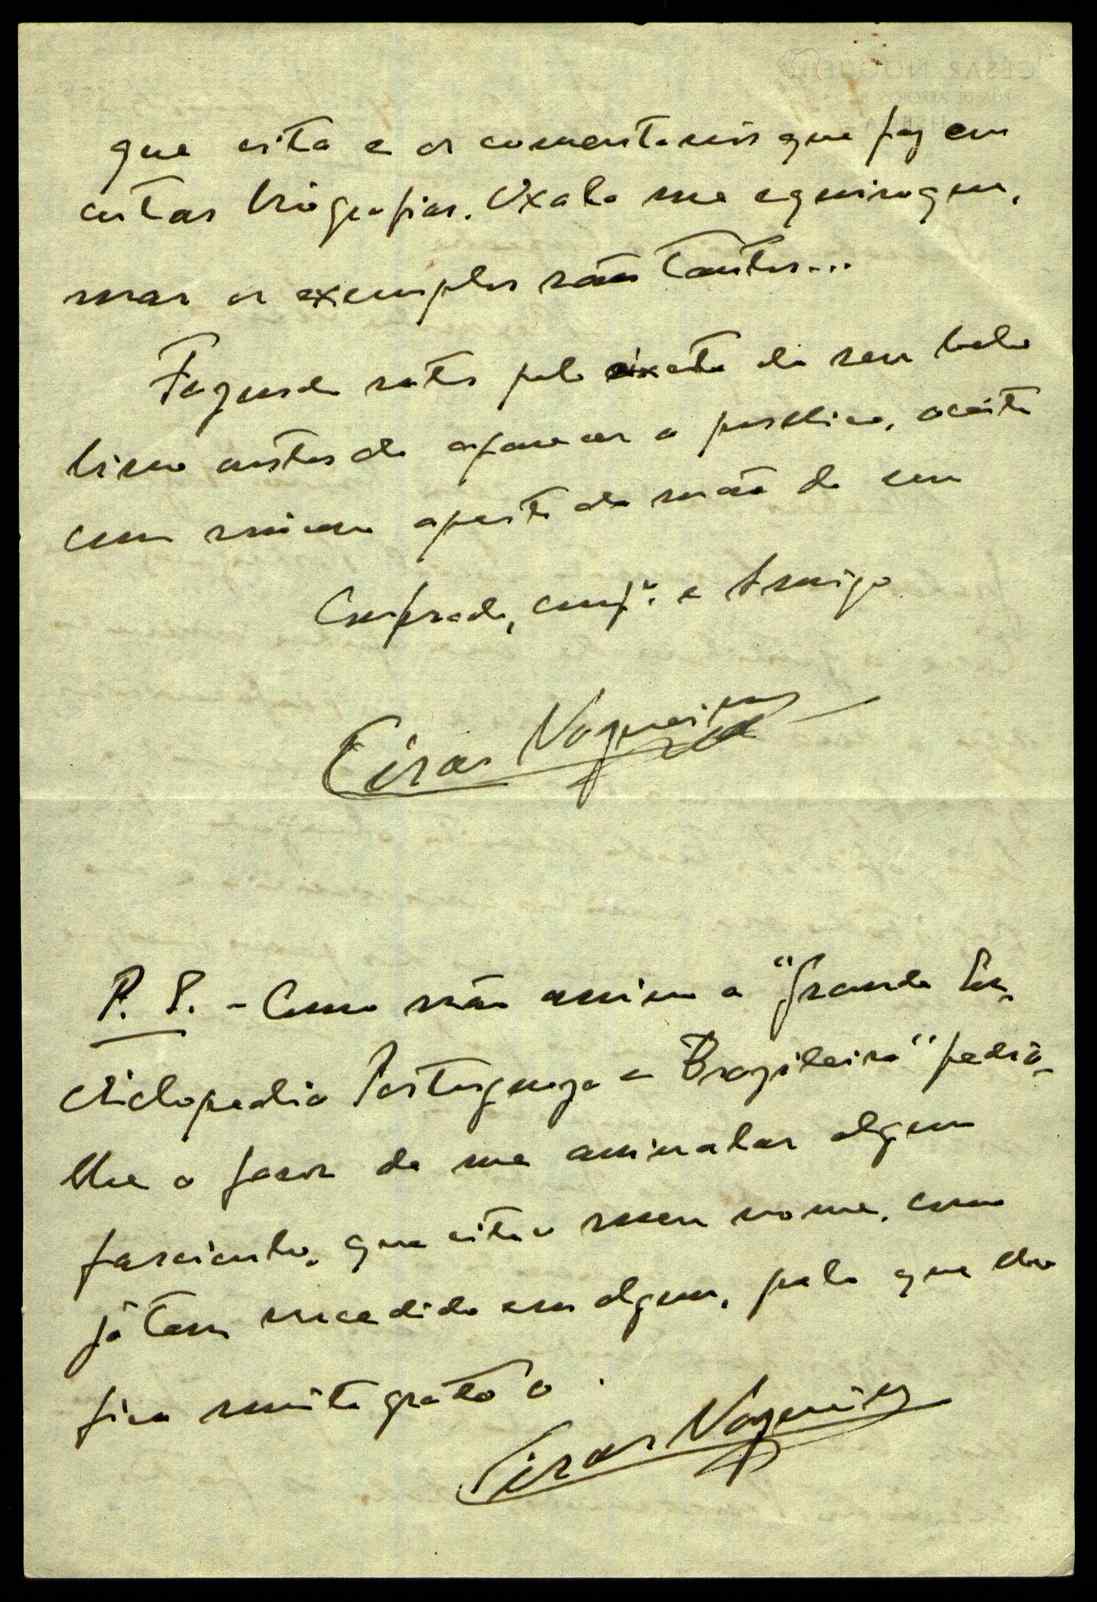 que cita e os comentarios que faz em
certas biografias. Oxalá me equivoque,
mas os exemplos são tantos...
Fazendo votos pelo exito do seu belo
livro antes de aparecer a publico, aceite
com amigo aperto de mão do seu
Confrade, e Amigo
César Nogueira
P. S. - Como não assino a "Grande En-
ciclopedia Portugueza e Brazileira" pedia-
lhe o favor de me assinalar algum
fasciculo, que cite o meu nome, como
já tem sucedido em algum, pelo que lhe
fica muito grato o
César Nogueira